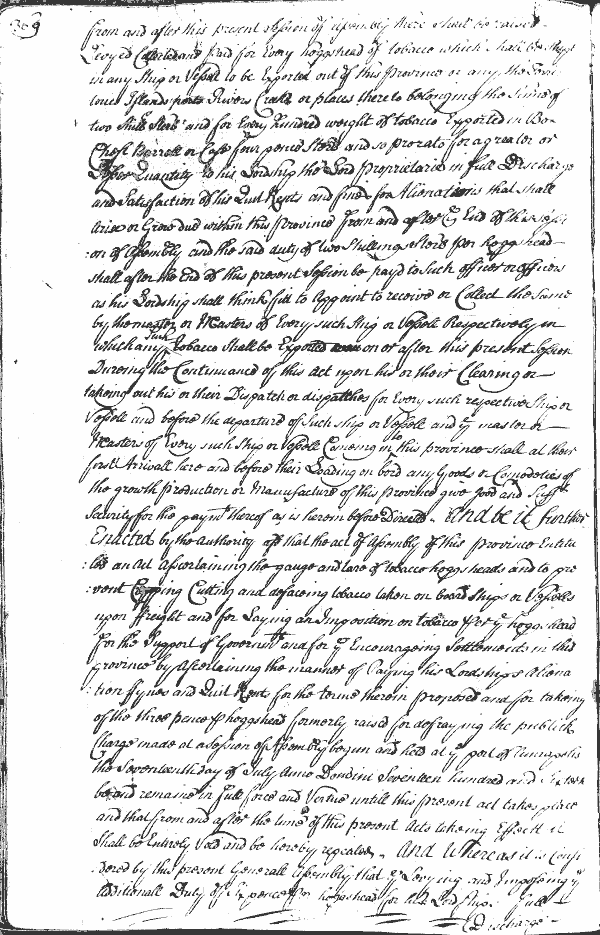 309
from and after this present session of assembly there shall be raised
Levyed Collected and paid for Every hogshead of tobacco which shall be shipt
in any Ship or Vessell to be Exported out of this Province or any the Terri
tories Islands ports Rivers Creeks or places thereto belonging the Sume of
two Shill Sterl and for Every hundred weight of tobacco Exported in Bo
Chest Barrell or Cask four pence Sterl and so prorato for a greater or
Lesser Quantity to his Lordship the Lord Proprietarie in full Discharge
and Satisfaction of his Quit Rents and fines for Alienations that shall
Arise or Grow due within this Province from and after ye End of this Sessi
:on of Assembly and the said duty of two Shillings Sterl per hogshead
shall after the End of this present Session be payd to Such officer or officers
as his Lordship shall think fitt to Appoint to receive or Collect the Same
by the master or Masters of Every such Ship or Vessell Respectively in
which any such tobacco Shall be Exported on or after this present Session
Dureing the Continuance of this Act upon his or their Clearing or
takeing out his or their Dispatch or dispatches for Every such respective Ship or
Vessell and before the departure of Such ship or Vessell and ye master or
Masters of Every such Ship or Vessell Comeing in to this province shall at their
first Arrivall here and before their Loading on bord any Goods or Comodeties of
the growth production or Manufacture of this Province give good and Suff
Security for the paymt thereof as is herein before Directd. And be it further
Enacted by the Authority afd that the act of Assembly of this Province Entitu
led an Act Ascertaining the gauge and tare of tobacco hogsheads and to pre
:vent Cropping Cutting and defaceing tobacco taken on board Ships or Vessells
upon ffreight and for Laying an Imposition on tobacco per ye hogshead
for the Support of Governmt and for ye Encourageing Settlements in this
province by Ascertaining the manner of Paying his Lordships Aliena
:tion ffynes and Quit Rents for the terme therein proposed and for takeing
of the three pence p hogshead formerly raised for defraying the publick
Charge made at a Session of Assembly begun and held at ye port of Annapolis
the Seventeenth day of July Anno Domini Seventeen hundred and Sixteen
be and remaine in full force and Vertue untill this present act takes place
and that from and after the time of this present Acts takeing Effect it
Shall be Entirely Void and be hereby repealed. And Whereas it is Consi
:dered by this present Generall Assembly that ye Levying and Imposeing ye
additionall Duty of Sixpence p hogshead for his Lordship. full
Discharge